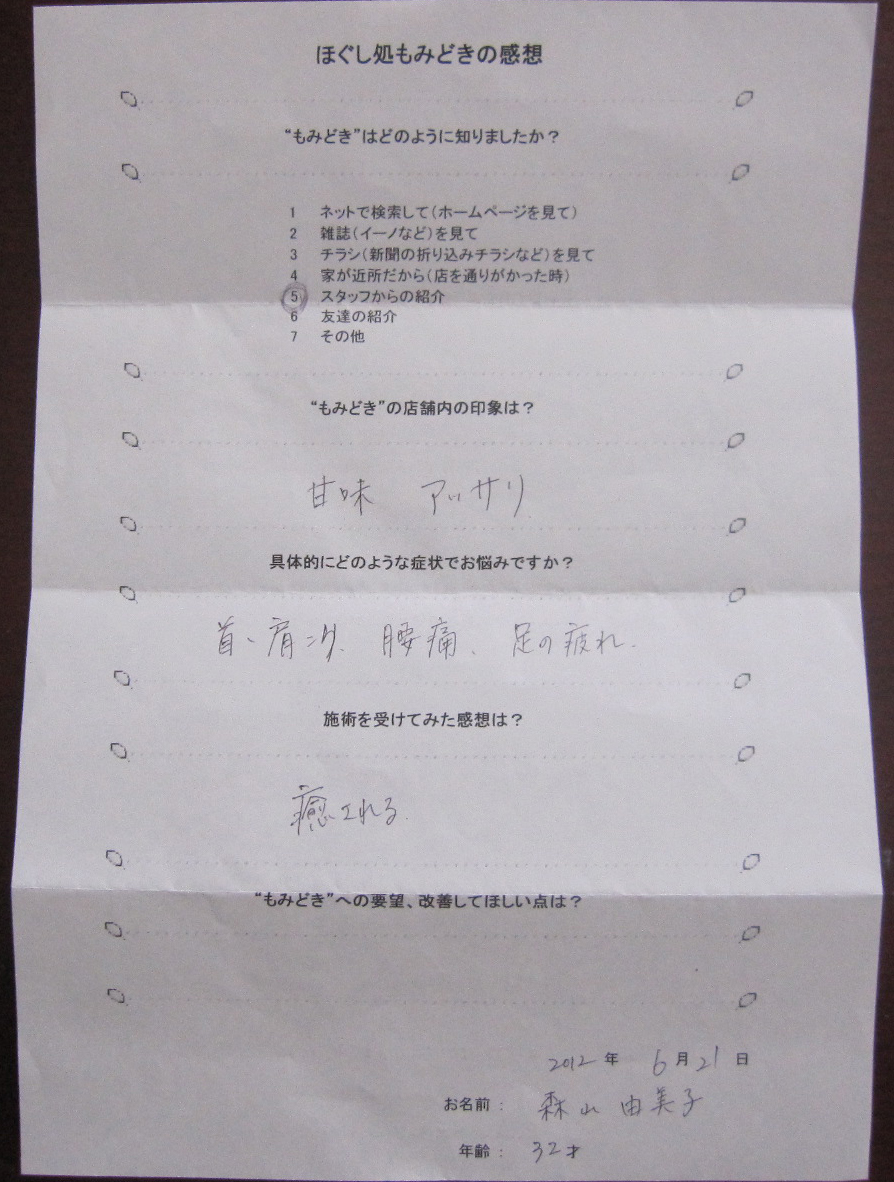 ほぐし処もみどきの感想
“もみどき”はどのように知りましたか？
1 ネットで検索して（ホームページを見て）
2 雑誌（イーノなど）を見て
3 チラシ（新聞の折り込みチラシなど）を見て
4 家が近所だから（店を通りがかった時）
5 スタッフからの紹介
6 友達の紹介
7 その他
“もみどき”の店舗内の印象は？
甘味 アッサリ
具体的にどのような症状でお悩みですか？
首、肩コリ、腰痛、足の疲れ.
施術を受けてみた感想は？
癒される.
“もみどき”への要望、改善してほしい点は？
2012 年 6 月 21 日
お名前： 森山 由美子
年齢： 32才